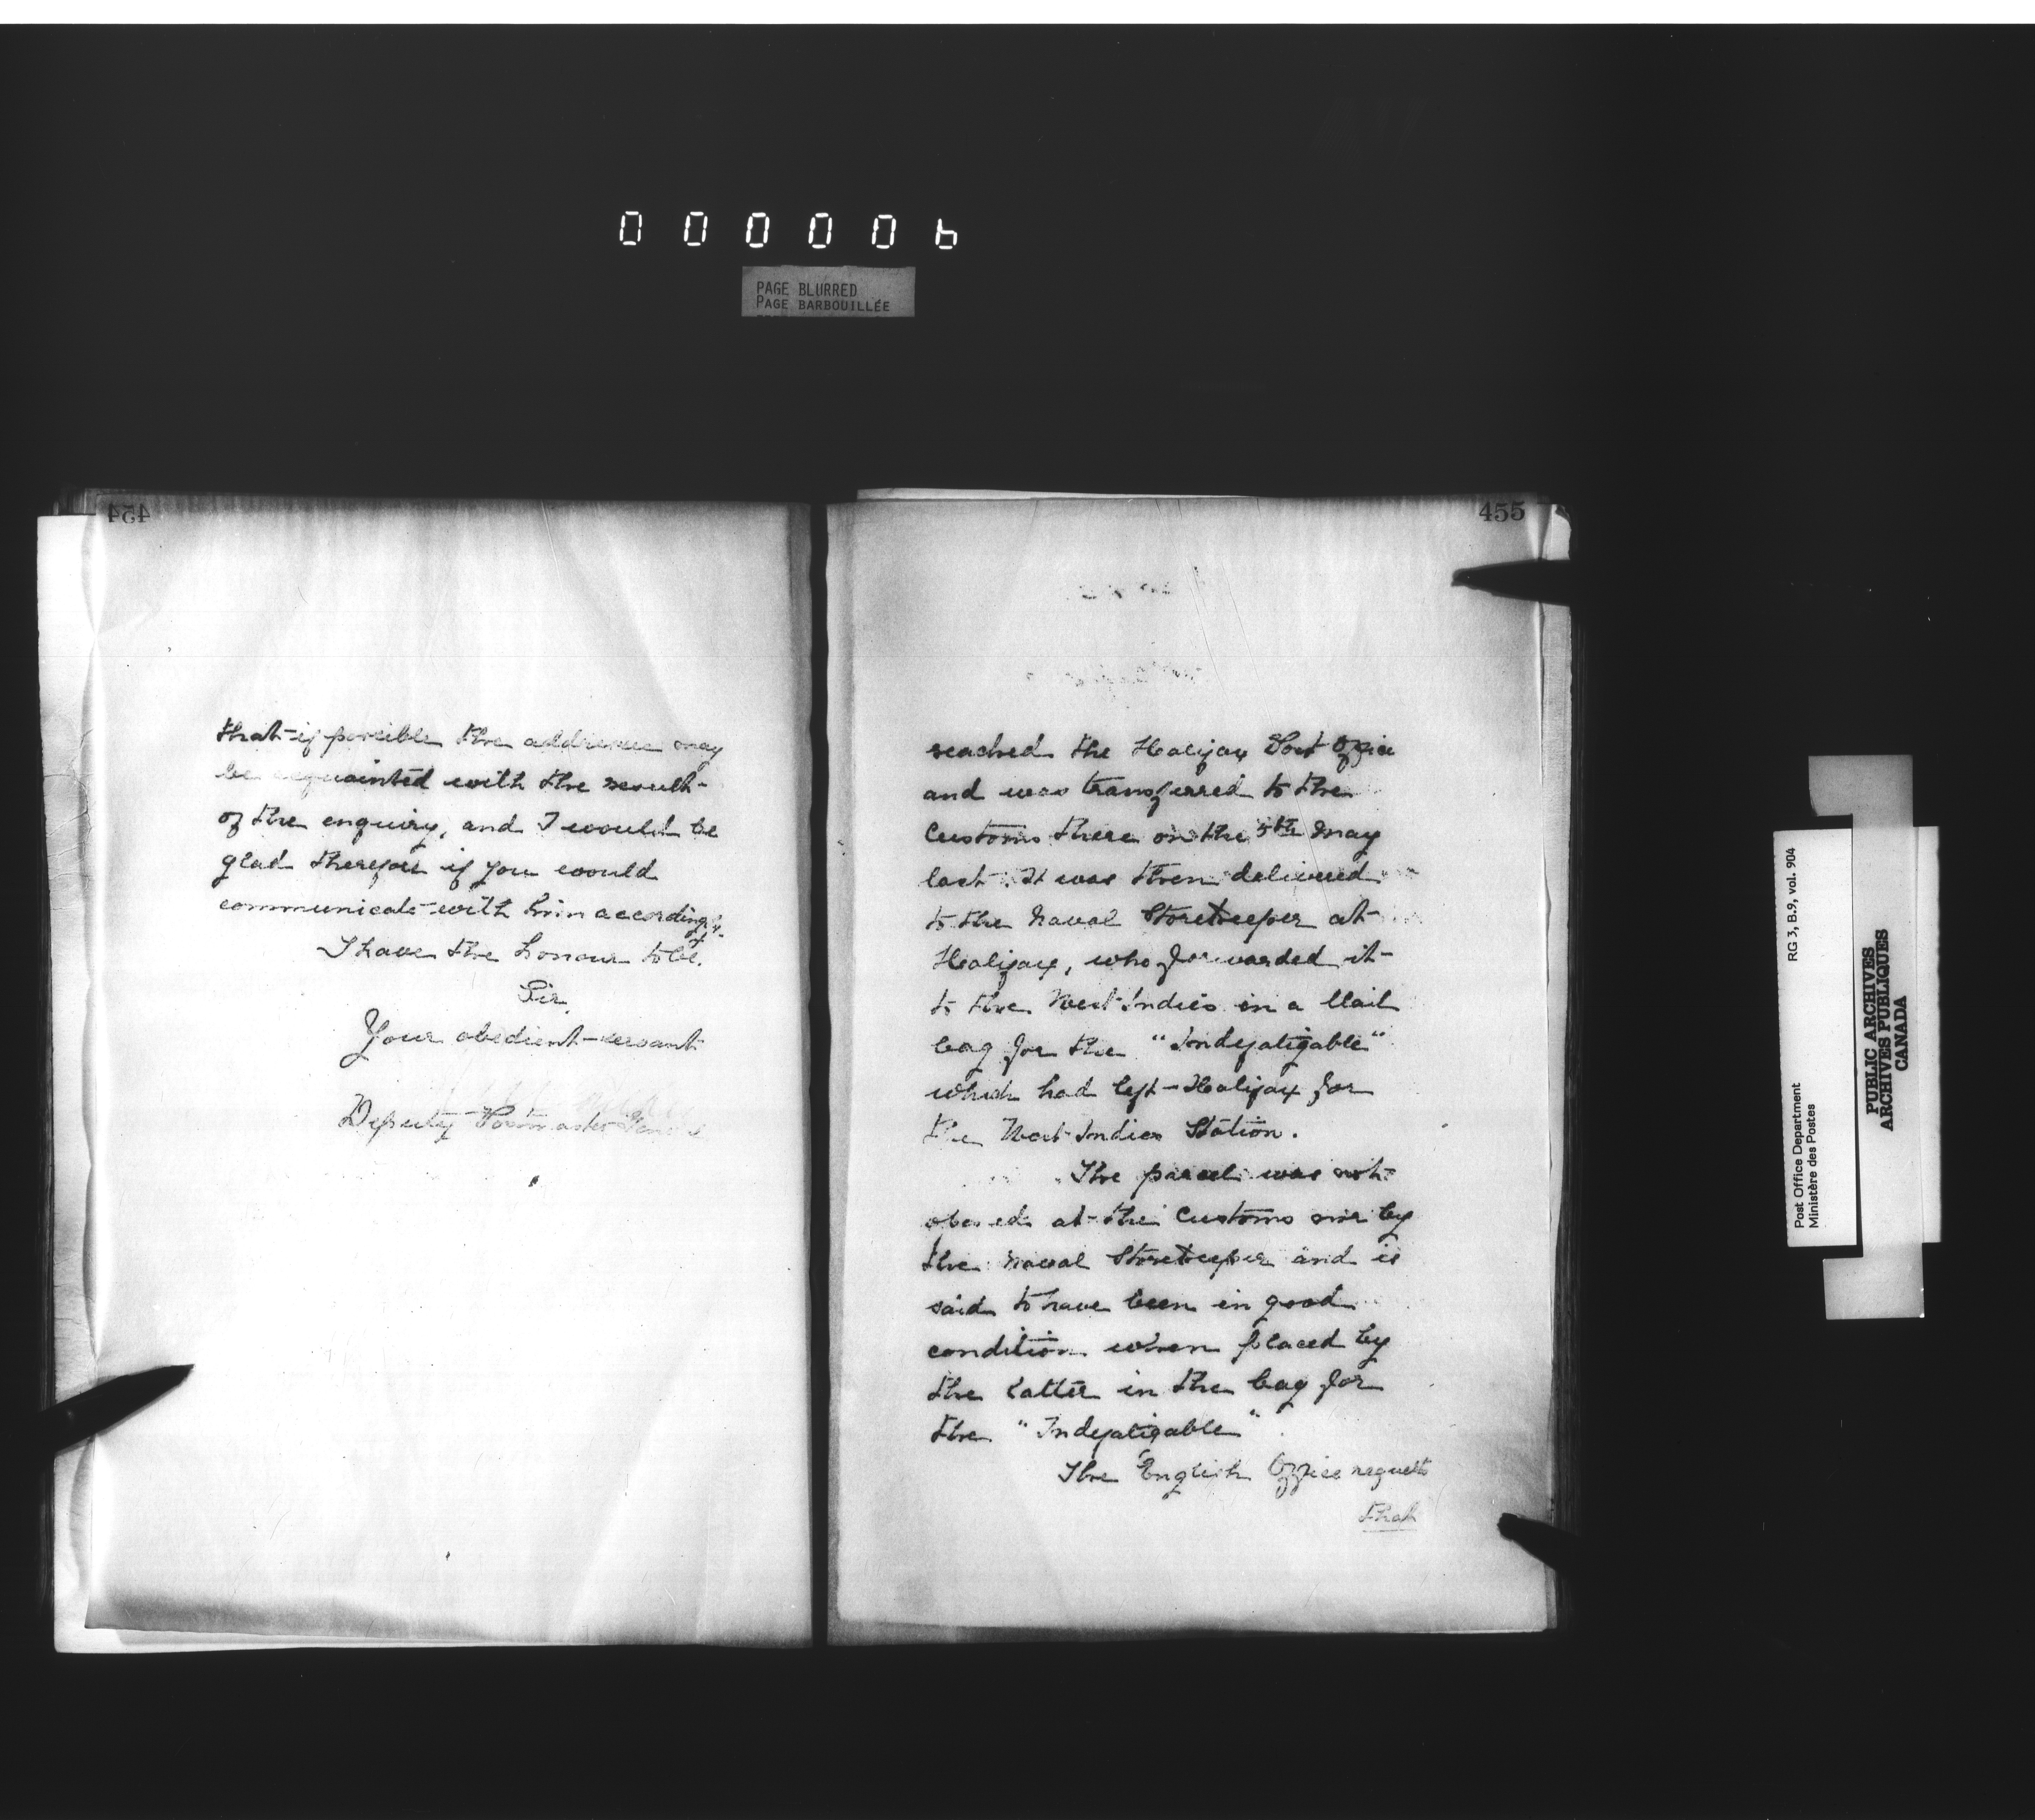 000006
PAGE BLURRED
PAGE BARBOUILLÉE
454
that if possible the addressee may
be acquainted with the result
of the enquiry, and I would be
glad therefore if you would
communicate with him accordingly.
I have the honour to be,
Sir,
Your obedient servant
Deputy Postmaster General
455
reached the Halifax Post Office
and was transferred to the
Customs there on the 5th May
last. It was then delivered
to the Naval Storekeeper at
Halifax, who forwarded it
to the West Indies in a Mail
bag for the "Indefatigable"
which had left Halifax for
the West Indies Station.
The parcel was not
opened at the Customs nor by
the Naval Storekeeper and is
said to have been in good
condition when placed by
the latter in the bag for
the "Indefatigable".
The English Office requests
that
Post Office Department
Ministère des Postes
RG 3, B.9, vol. 904
PUBLIC ARCHIVES
ARCHIVES PUBLIQUES
CANADA